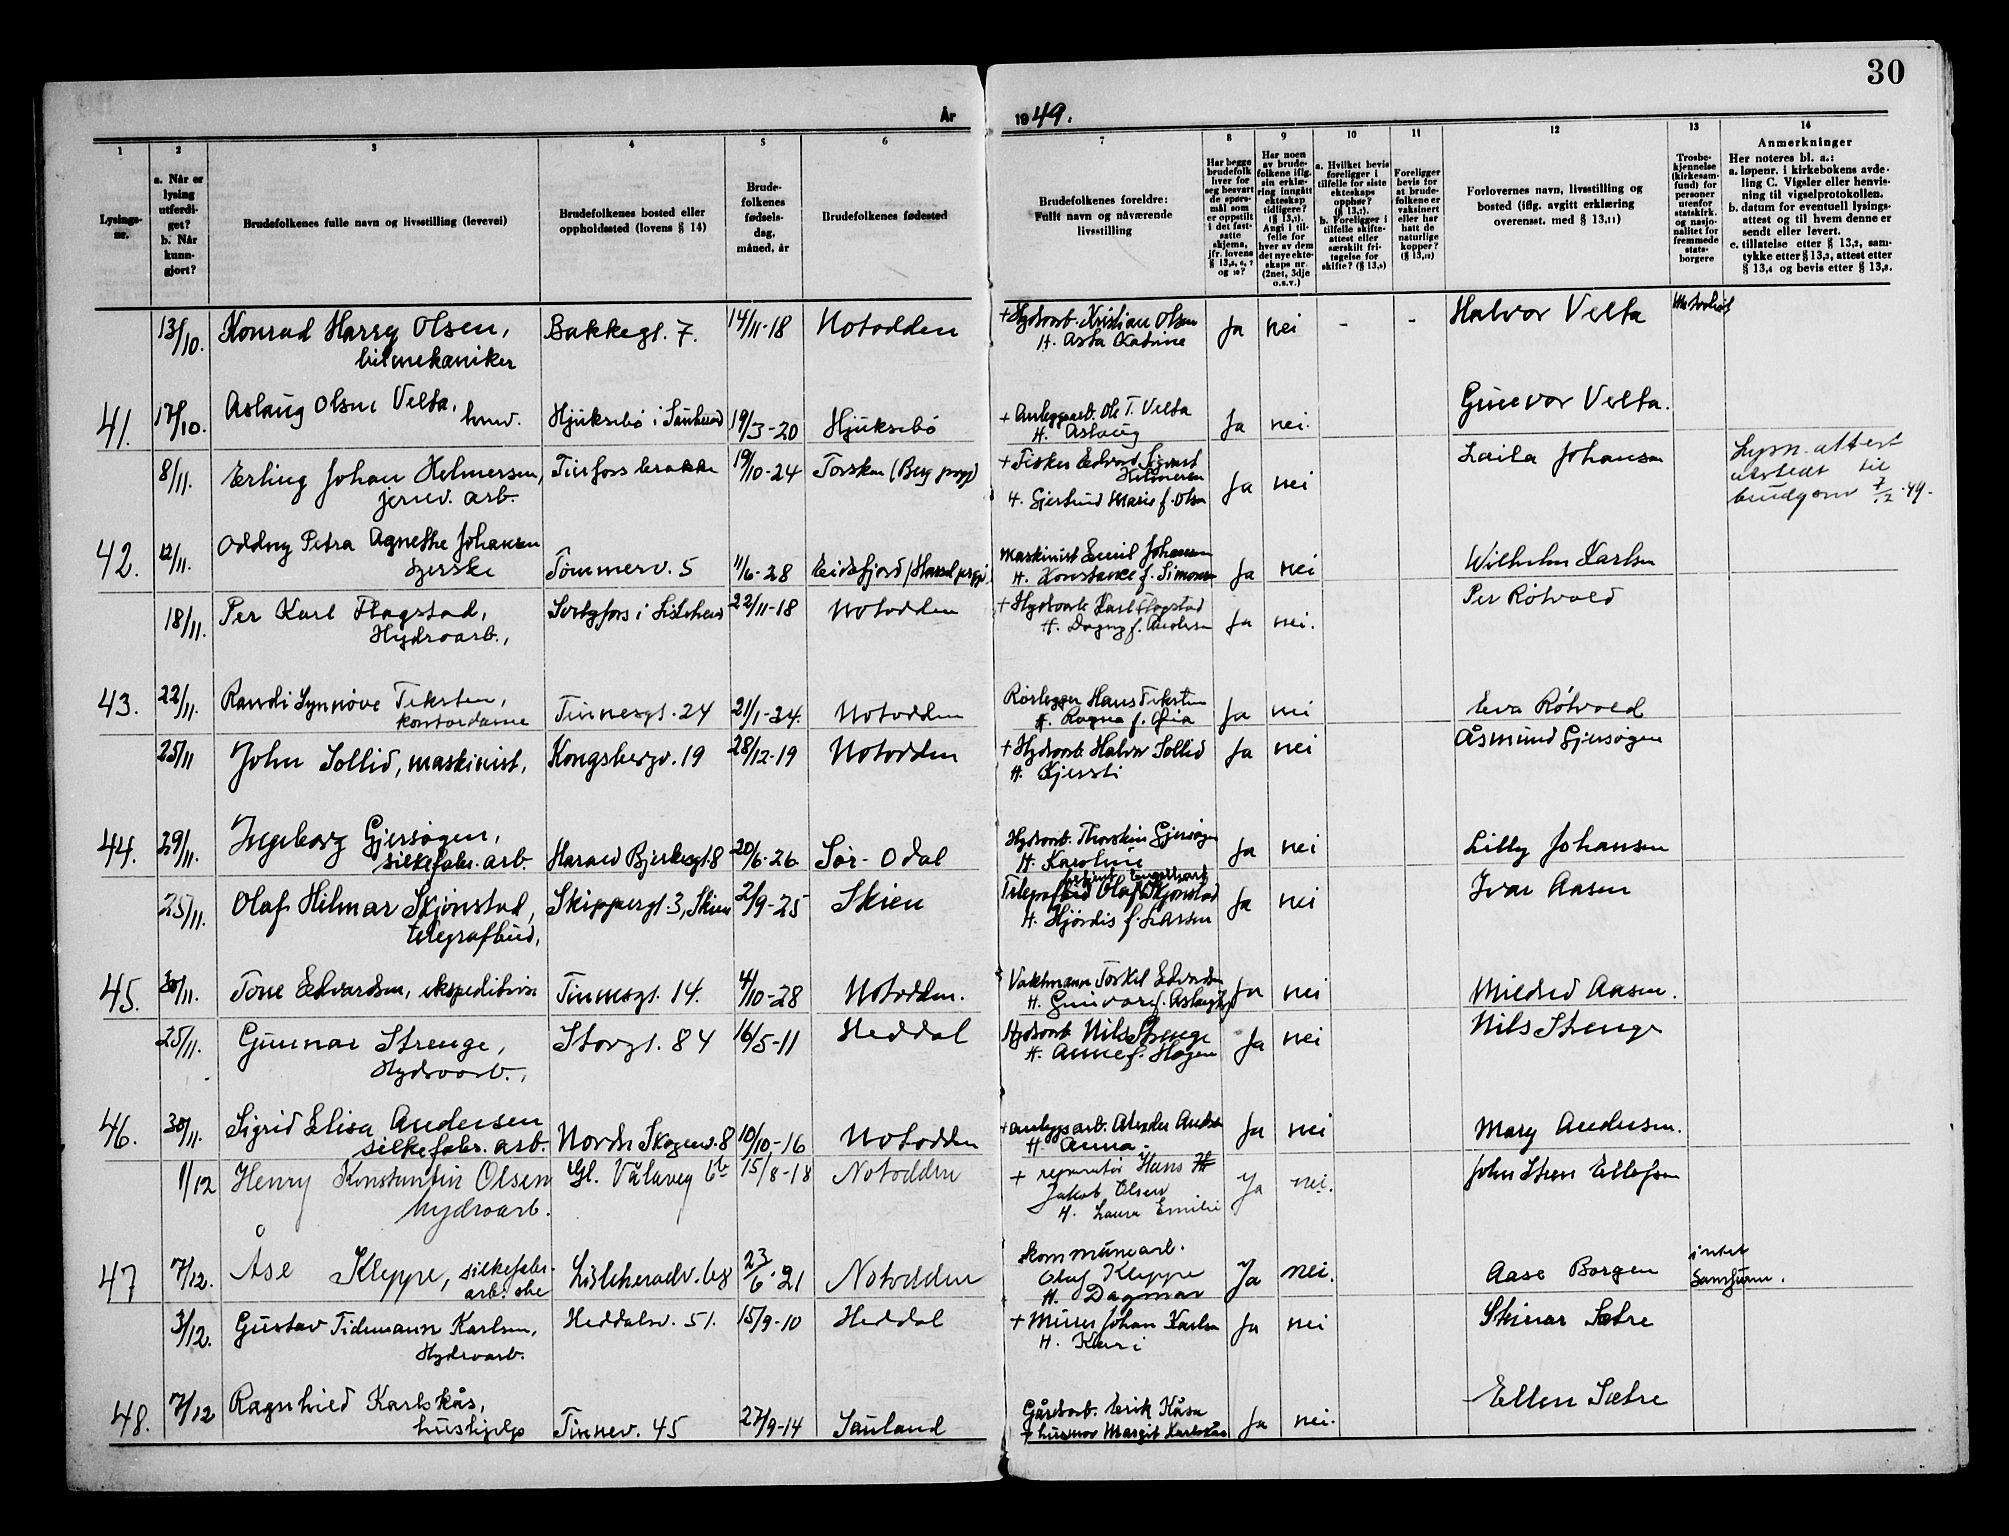 30
År 1949.
1 2 3 4 5 6 7 8 9 10 11 12 13 14
Lysings-
nr.
a. Når er
lysing
utferdi-
get?
b. Når
kunn-
gjort?
Brudefolkenes fulle navn og livsstilling (levevei)
Brudefolkenes bosted eller
oppholdssted (lovens § 14)
Brude-
folkenes
fødsels-
dag,
måned, år
Brudefolkenes fødested
Brudefolkenes foreldre:
Fullt navn og nåværende
livsstilling
Har begge
brudefolk
hver for
seg besvart
de spørs-
mål som
er oppstilt
i det fast-
satte
skjema,
jfr. lovens
Har noen
av brude-
folkene iflg.
sin erklæ-
ring inngått
ekteskap
tidligere?
(§ 13,1).
Angi i til-
felle for
hver av dem
det nye ekte-
skaps nr.
(2net, 3dje
o.s.v.)
a. Hvilket bevis
foreligger i
tilfelle for siste
ekteskaps
opphør?
b. Foreligger i
tilfelle skifte-
attest eller
særskilt fri-
tagelse for
skifte?
Foreligger
bevis for
at brude-
folkene er
vaksinert
eller har
hatt de
naturlige
kopper?
Forlovernes navn, livsstilling og
bosted (iflg. avgitt erklæring
overensst. med § 13,11)
Trosbe-
kjennelse
(kirkesam-
fund) for
personer
utenfor
statskirk.
og nasjo-
nalitet for
fremmede
stats-
borgere
Anmerkninger
Her noteres bl. a.:
a. løpenr. i kirkebokens avde-
ling C. Vigsler eller henvis-
ning til vigselprotokollen.
b. datum for eventuell lysings-
attest og til hvem denne er
sendt eller levert.
c. tillatelse etter § 13,2, sam-
tykke etter § 13,3, attest etter
§ 13,4 og bevis etter § 13,8.
13/10. Konrad Harry Olsen, Bakkegt. 7. 14/11-18 Notodden + Hydroarb. Kristian Olsen Ja nei - - Halvor Velta
bilmekaniker H. Asta Katrine
41. 17/10. Aslaug Olsne Velta, Hjuksebø i Sauherad 19/3-20 Hjuksebø + Anleggsarb. Ole T. Velta Ja nei. Gunvor Velta.
H. Aslaug
8/11. Erling Johan Helmersen, Tinfoss brakke 19/10-24 Torsken (Berg prgj) + Fisker Edvard Sigvart Helmersen Ja nei Laila Johansen Lysn. attest
jernv. arb. H. Gjertrud Marie f. Olsen utstedt til
brudgom 7/12.49.
42. 12/11. Oddny Petra Agnethe Johansen Tømmerv. 5 11/6-28 Eidsfjord / Hadsel prgj. Maskinist Emil Johansen Ja nei Wilhelm Karlsen
H. Konstance f. Simonsen
18/11. Per Karl Flagstad, Svelgfoss i Lisleherad 22/11-18 Notodden + Hydroarb Karl Flagstad Ja nei. Per Røtvold
Hydroarb., H. Dagny f. Andersen
43. 22/11. Randi Synnøve Teksten, Tinnesgt. 24 21/1-24. Notodden Rørlegger Hans Teksten Ja nei Eva Røtvold
kontordame H. Ragna f. Øia
25/11 John Sollid, maskinist, Kongsbergv. 19 28/12-19 Notodden + Hydroarb Halvor Sollid Ja nei Åsmund Gjersøgen
H. Kjersti
44. 29/11. Ingeborg Gjersøgen, Harald Bjerkesgt. 8 20/6-26 Sør-Odal Hydroarb. Thorstein Gjersøgen Ja nei Lilly Johansen
silkefabr. arb. H. Karoline
25/11. Olaf Hilmar Skjønstad, Skippergt. 3, Skien 2/9-25 Skien Olaf Skjønstad Ja nei Ivar Aasen
telegrafbud, H. Hjørdis f. Larsen
45. 30/11. Tone Edvardsen, ekspeditrise Tinnesgt. 14. 4/10-28 Notodden. Vaktmann Torkel Edvardsen Ja nei Mildred Aasen.
H. Gunvor f.
25/11. Gunnar Strenge, Storgt. 84 16/5-11 Heddal Hydroarb. Nils Strenge Ja nei Nils Strenge
Hydroarb., H. Anne f. Hagen
46. 30/11. Sigrid Elisa Andersen Nordr. Skogenv. 8 10/10-16 Notodden + anleggsarb. Ja nei Mary Andersen.
silkefabr. arb. H. Anna.
1/12 Henry Konstantin Olsen Gl. Vålaveg 6b 15/8-18 Notodden + reparatør Hans Ja nei. John Steen Ellefsen
hydroarb. Jakob Olsen
H. Laura Emilie
47 7/12. Åse Kleppe, silkefabr. Lisleheradv. 68 23/6.21 Notodden Kommunearb. Ja nei. Aase Borgen intet
arb.ske Olaf Kleppe samfunn.
H. Dagmar
3/12. Gustav Tidemann Karlsen, Heddalsv. 51. 15/9-10 Heddal + Murer Johan Karlsen Ja nei Steinar Sætre
Hydroarb. H. Kari
48. 7/12 Ragnhild Karlskås, Tinnev. 45 27/9-14 Sauland Gårdsarb. Erik Kåsa Ja nei. Ellen Sætre
hushjelp + husmor Margit Karlskås